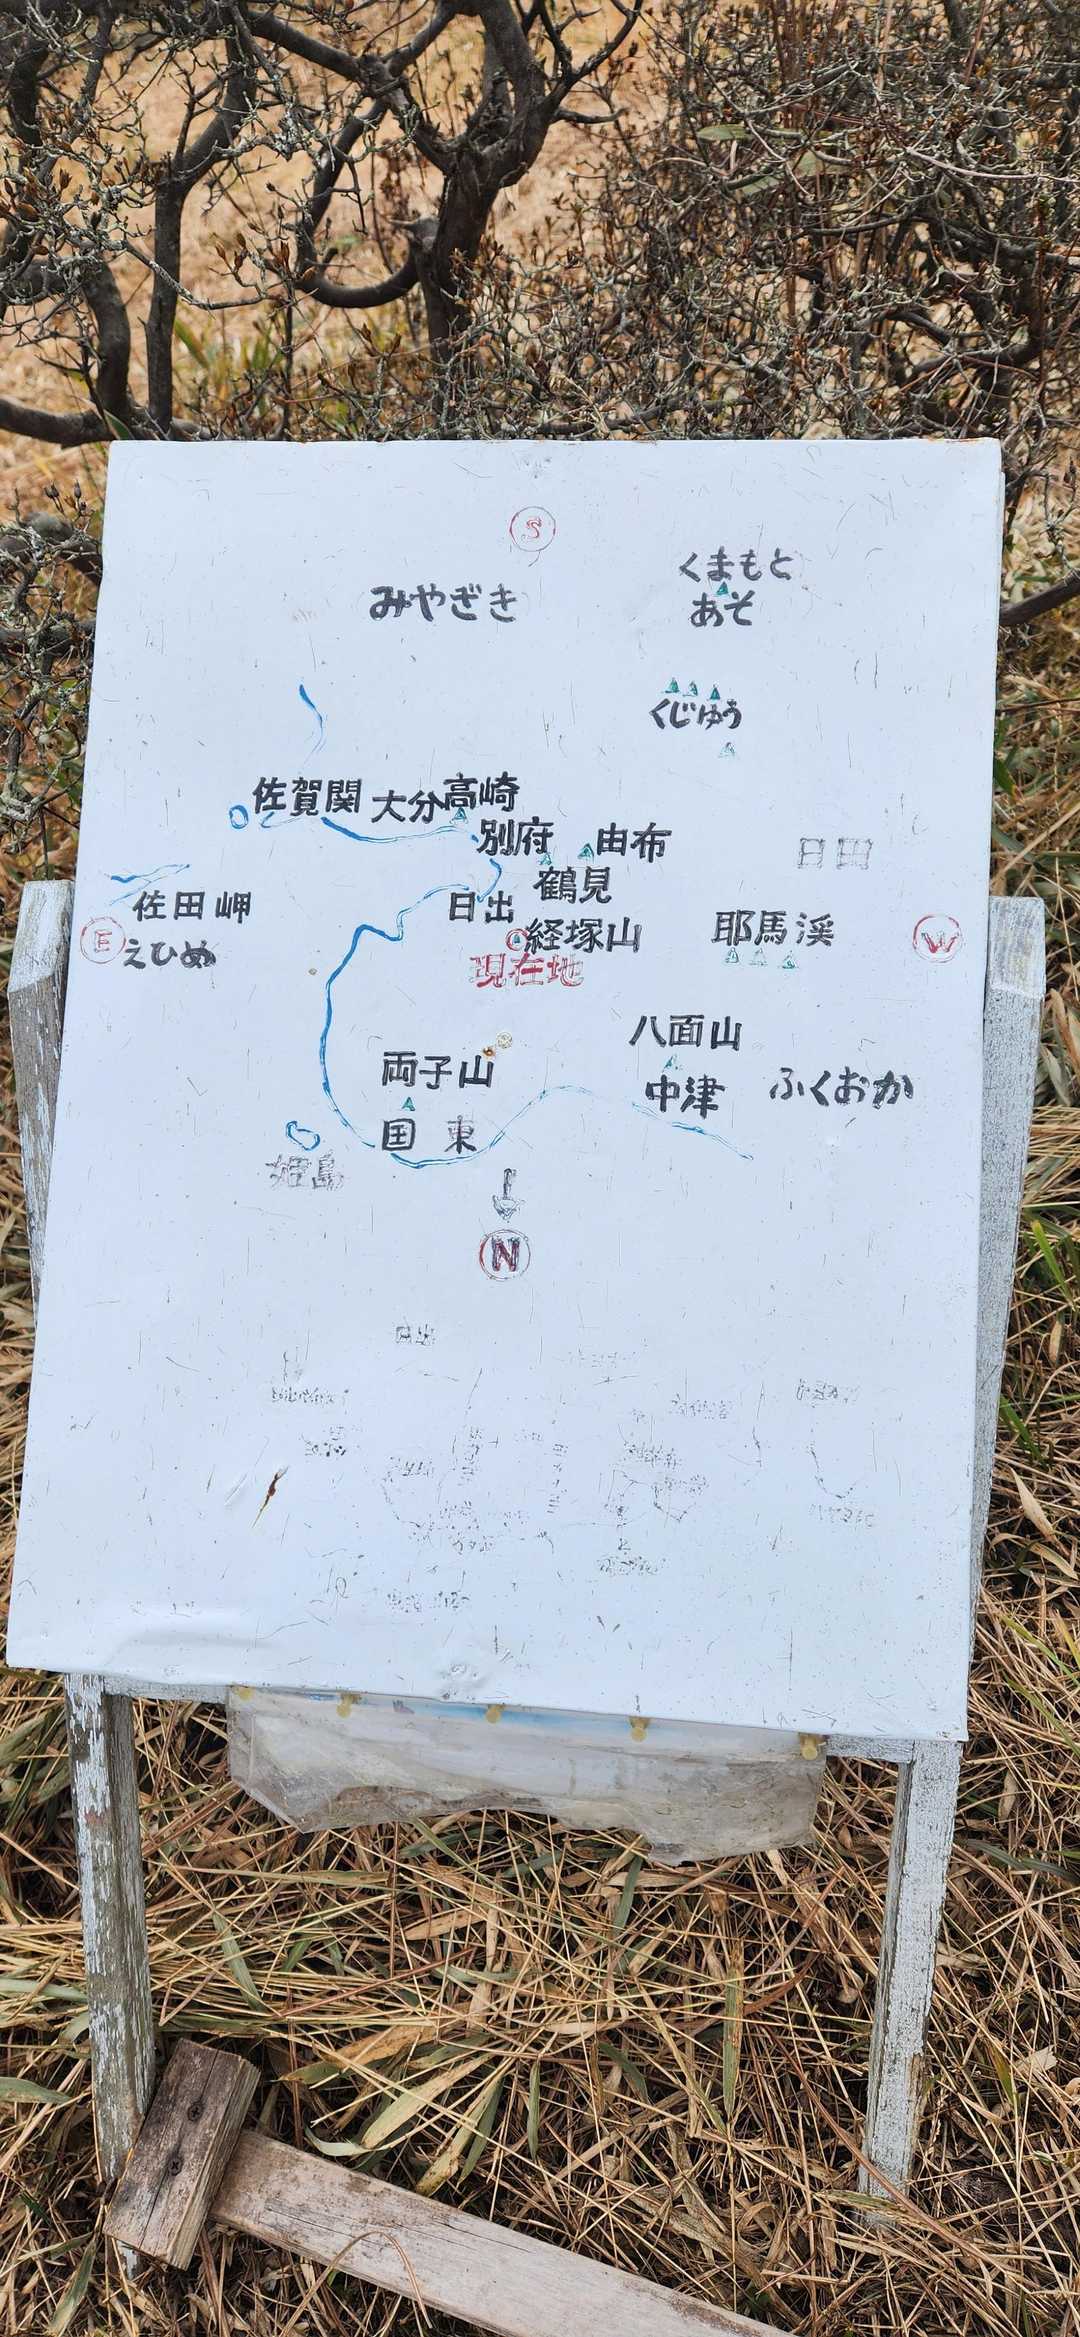 S
くまもと
みやざき
あそ
くじゅう
佐賀関
大分
高崎
別府
由布
日田
鶴見
佐田岬
日出
E
えひめ
経塚山
耶馬渓
W
現在地
八面山
両子山
中津
ふくおか
国東
姫島
N
日出